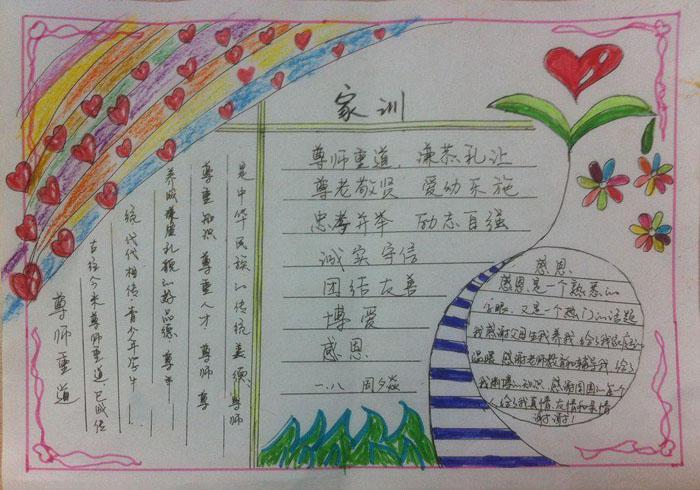 家训
尊师重道 谦恭礼让
尊老敬贤 爱幼乐施
忠孝并举 励志自强
诚实守信
团结友善
博爱
感恩
一.八 周夕焱
尊师重道
古往今来尊师重道已成传
统代代相传青少年学生
养成谦虚礼貌的好品德,尊
尊重知识 尊重人才 尊师 尊
是中华民族的传统美德,尊师
感恩
感恩是一个熟悉的
字眼,又是一个热门的话题
我感谢父母生我养我,给了我家庭的
温暖,感谢老师教育和辅导我,给了
我的知识,感谢周围的每个
人,给了我真情、友情和亲情
谢谢!